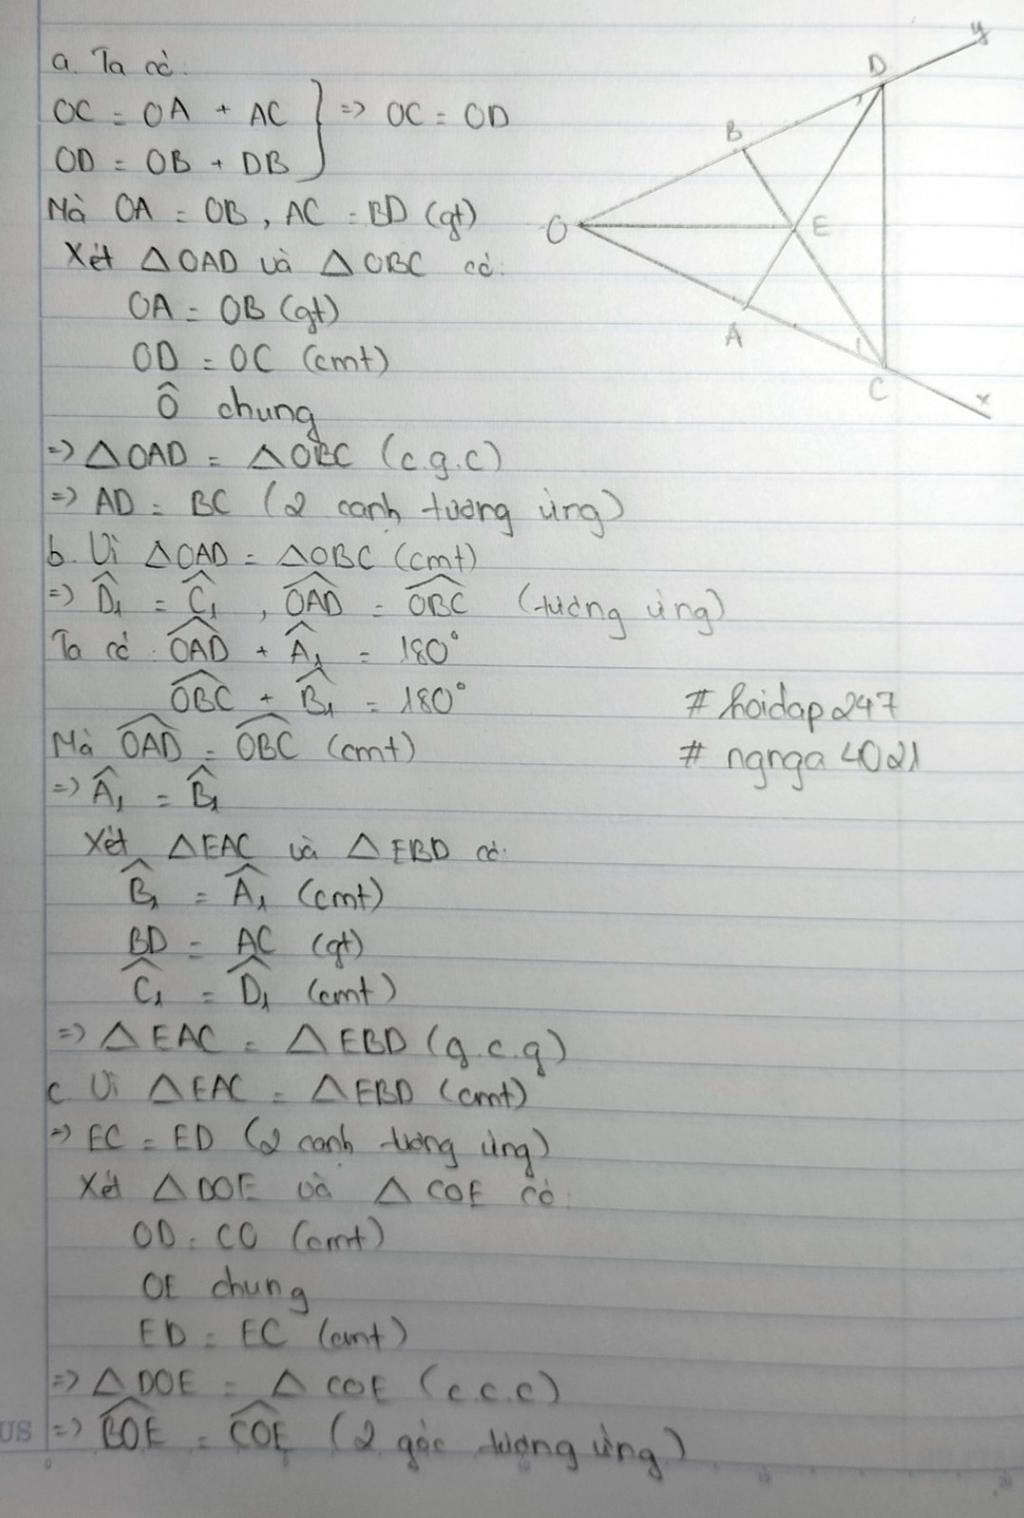 a. Ta có:
OC = OA + AC } => OC = OD
OD = OB + DB
Mà OA = OB, AC = BD (gt)
Xét △OAD và △OBC có:
OA = OB (gt)
OD = OC (cmt)
Ô chung
=> △OAD = △OBC (c.g.c)
=> AD = BC (2 cạnh tương ứng)
b. Vì △OAD = △OBC (cmt)
=> D̂₁ = Ĉ₁, OAD̂ = OBĈ (tương ứng)
Ta có: OAD̂ + Â₁ = 180°
OBĈ + B̂₁ = 180°
Mà OAD̂ = OBĈ (cmt)
=> Â₁ = B̂₁
Xét △EAC và △EBD có:
B̂₁ = Â₁ (cmt)
BD = AC (gt)
Ĉ₁ = D̂₁ (cmt)
=> △EAC = △EBD (g.c.g)
c. Vì △EAC = △EBD (cmt)
=> EC = ED (2 cạnh tương ứng)
Xét △DOE và △COE có:
OD = CO (cmt)
OE chung
ED = EC (cmt)
=> △DOE = △COE (c.c.c)
=> BOÊ = COÊ (2 góc tương ứng)
y
D
1
B
O
E
A
1
C
x
#hoidap247
#ngnga4021
US